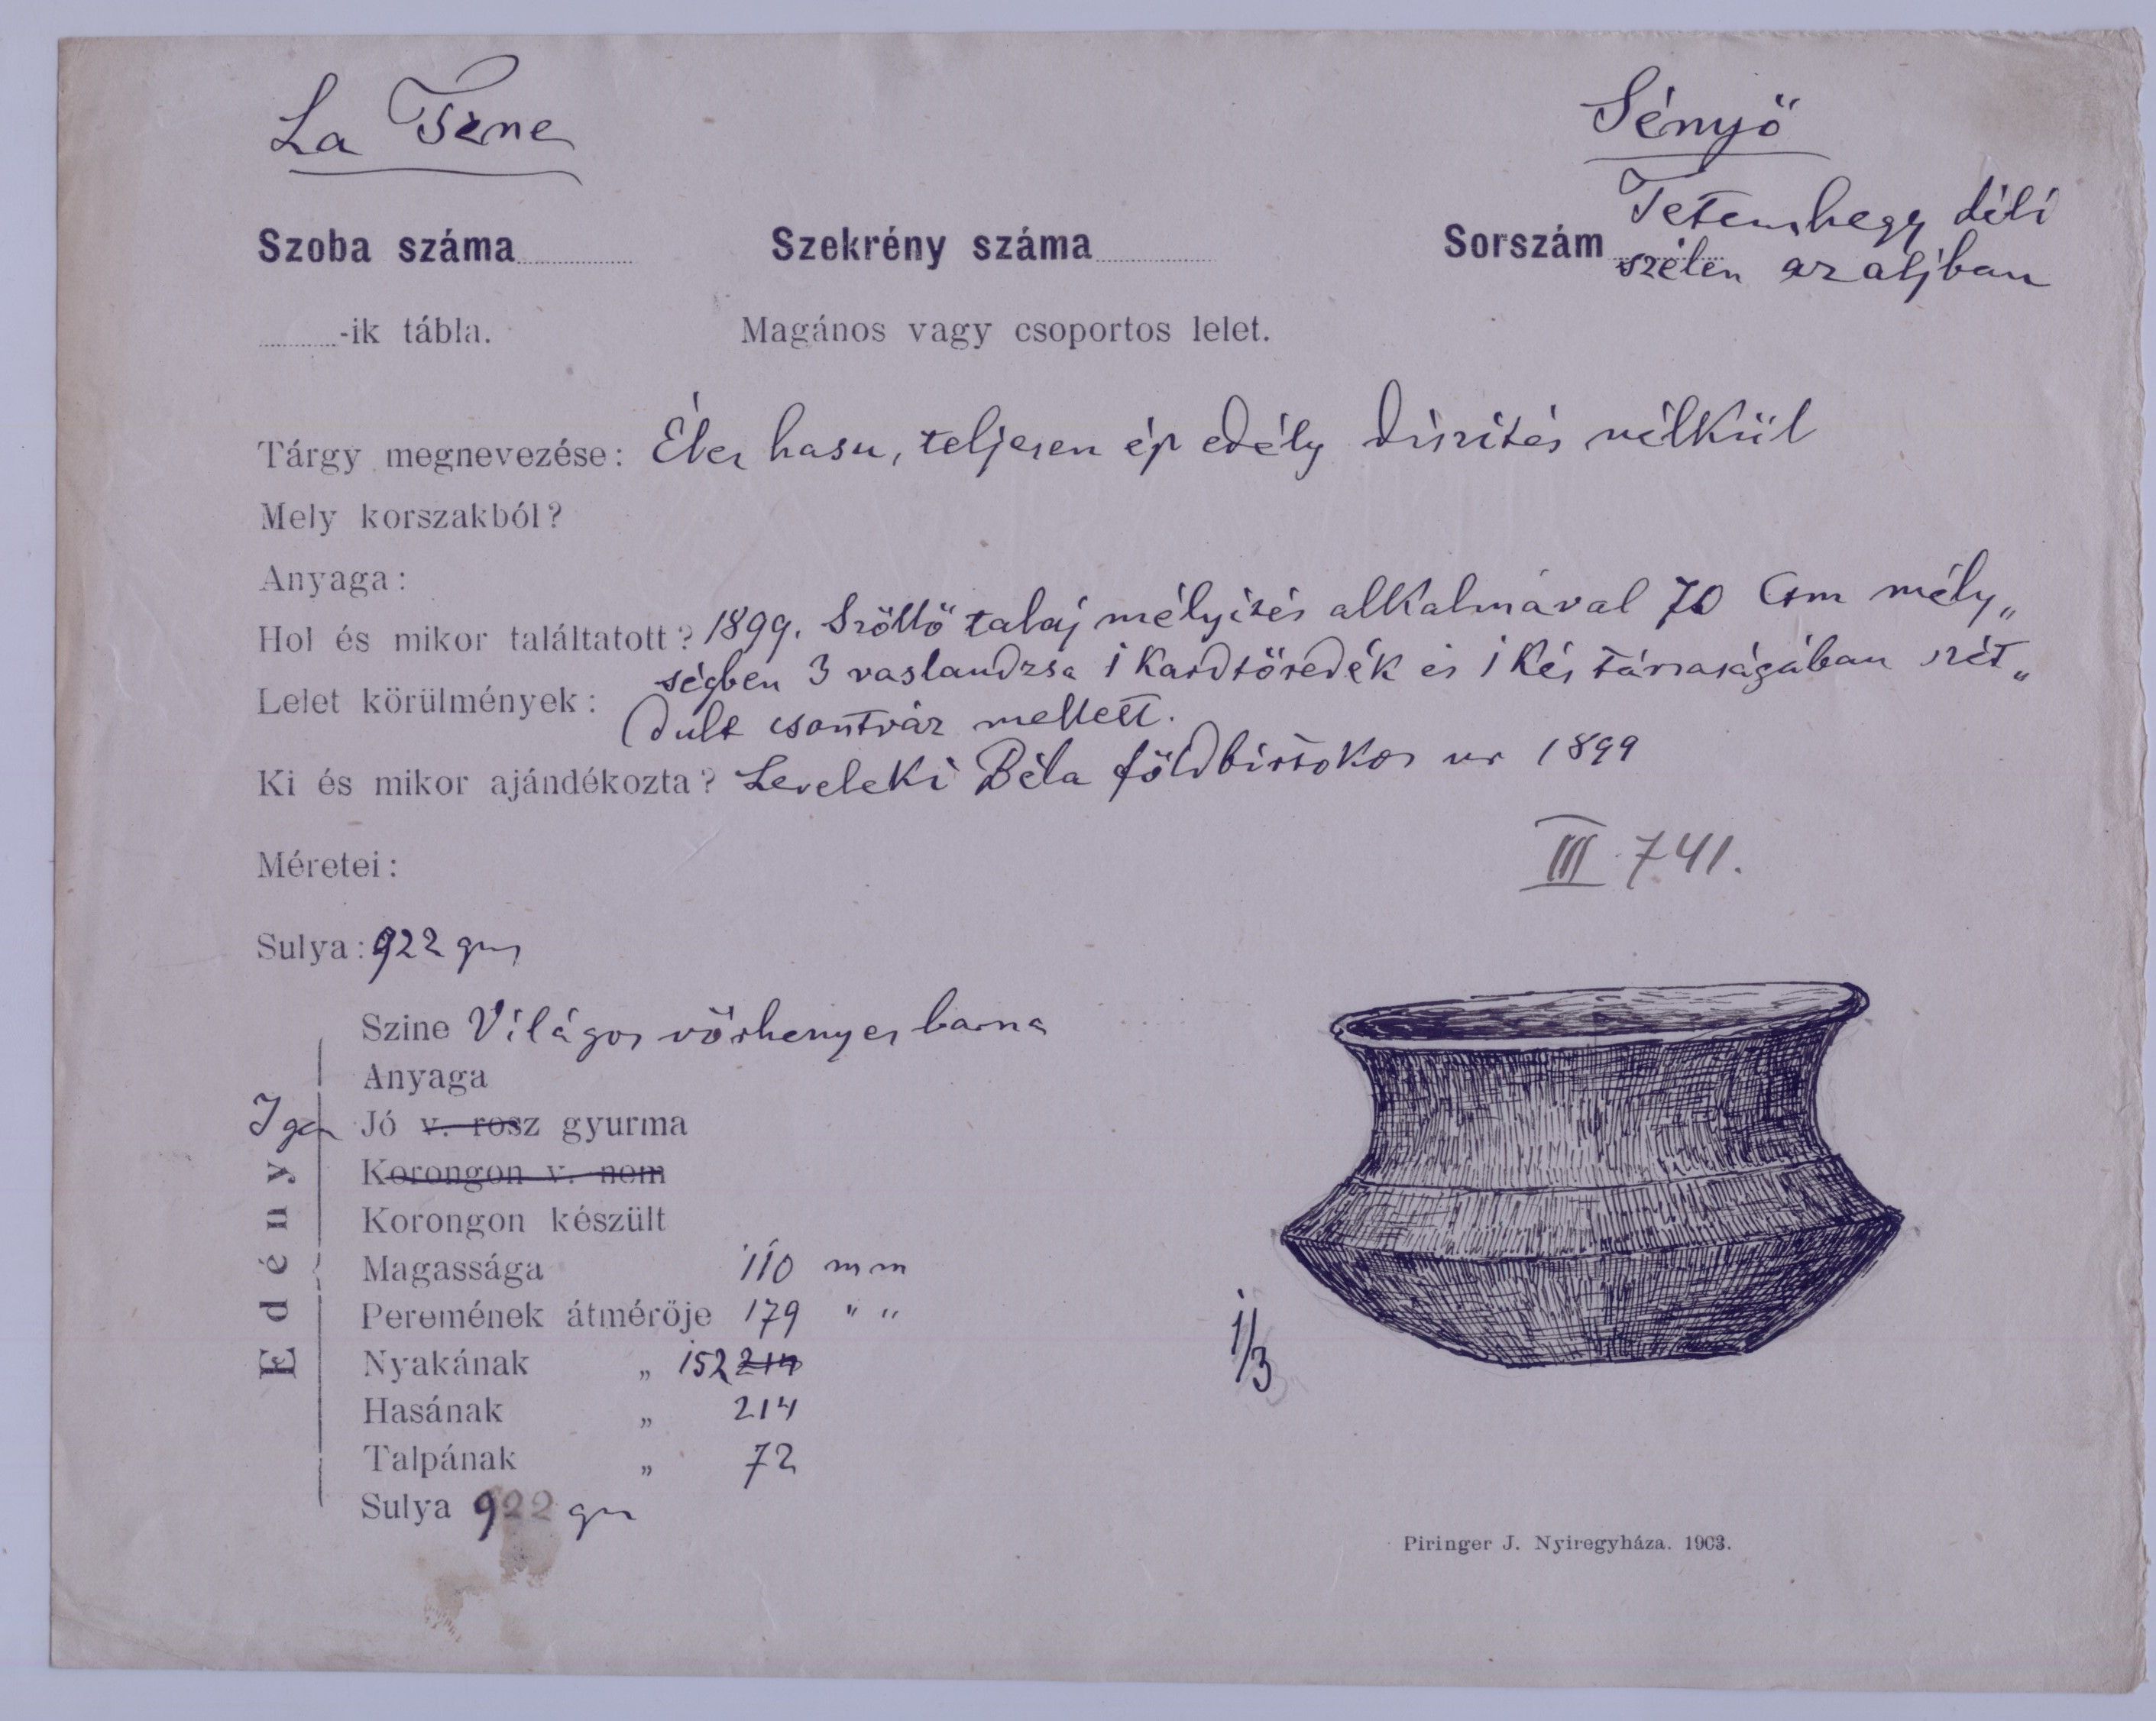 La Tzne
Sényő
Tetemhegy déli
szélén az aljban
Szoba száma
Szekrény száma
Sorszám
-ik tábla.
Magános vagy csoportos lelet.
Tárgy megnevezése: Éles hasu, teljesen ép edély díszítés nélkül
Mely korszakból?
Anyaga:
Hol és mikor találtatott? 1899. Szöllő talaj mélyítés alkalmával 70 Csm mély„
Lelet körülmények: ségben 3 vaslandzsa 1 Kardtöredék és 1 Kés társaságában szét„
dult csontváz mellett.
Ki és mikor ajándékozta? Leveleki Béla földbirtokos ur 1899
Méretei:
III. 741.
Sulya: 922 gm
Edény
Szine Világos vörhenyes barna
Anyaga
Igen Jó v. rosz gyurma
Korongon v. nem
Korongon készült
Magassága 110 mm
Peremének átmérője 179 " "
Nyakának „ 152 214
Hasának „ 214
Talpának „ 72
Sulya 922 gm
1/3
Piringer J. Nyiregyháza. 1903.